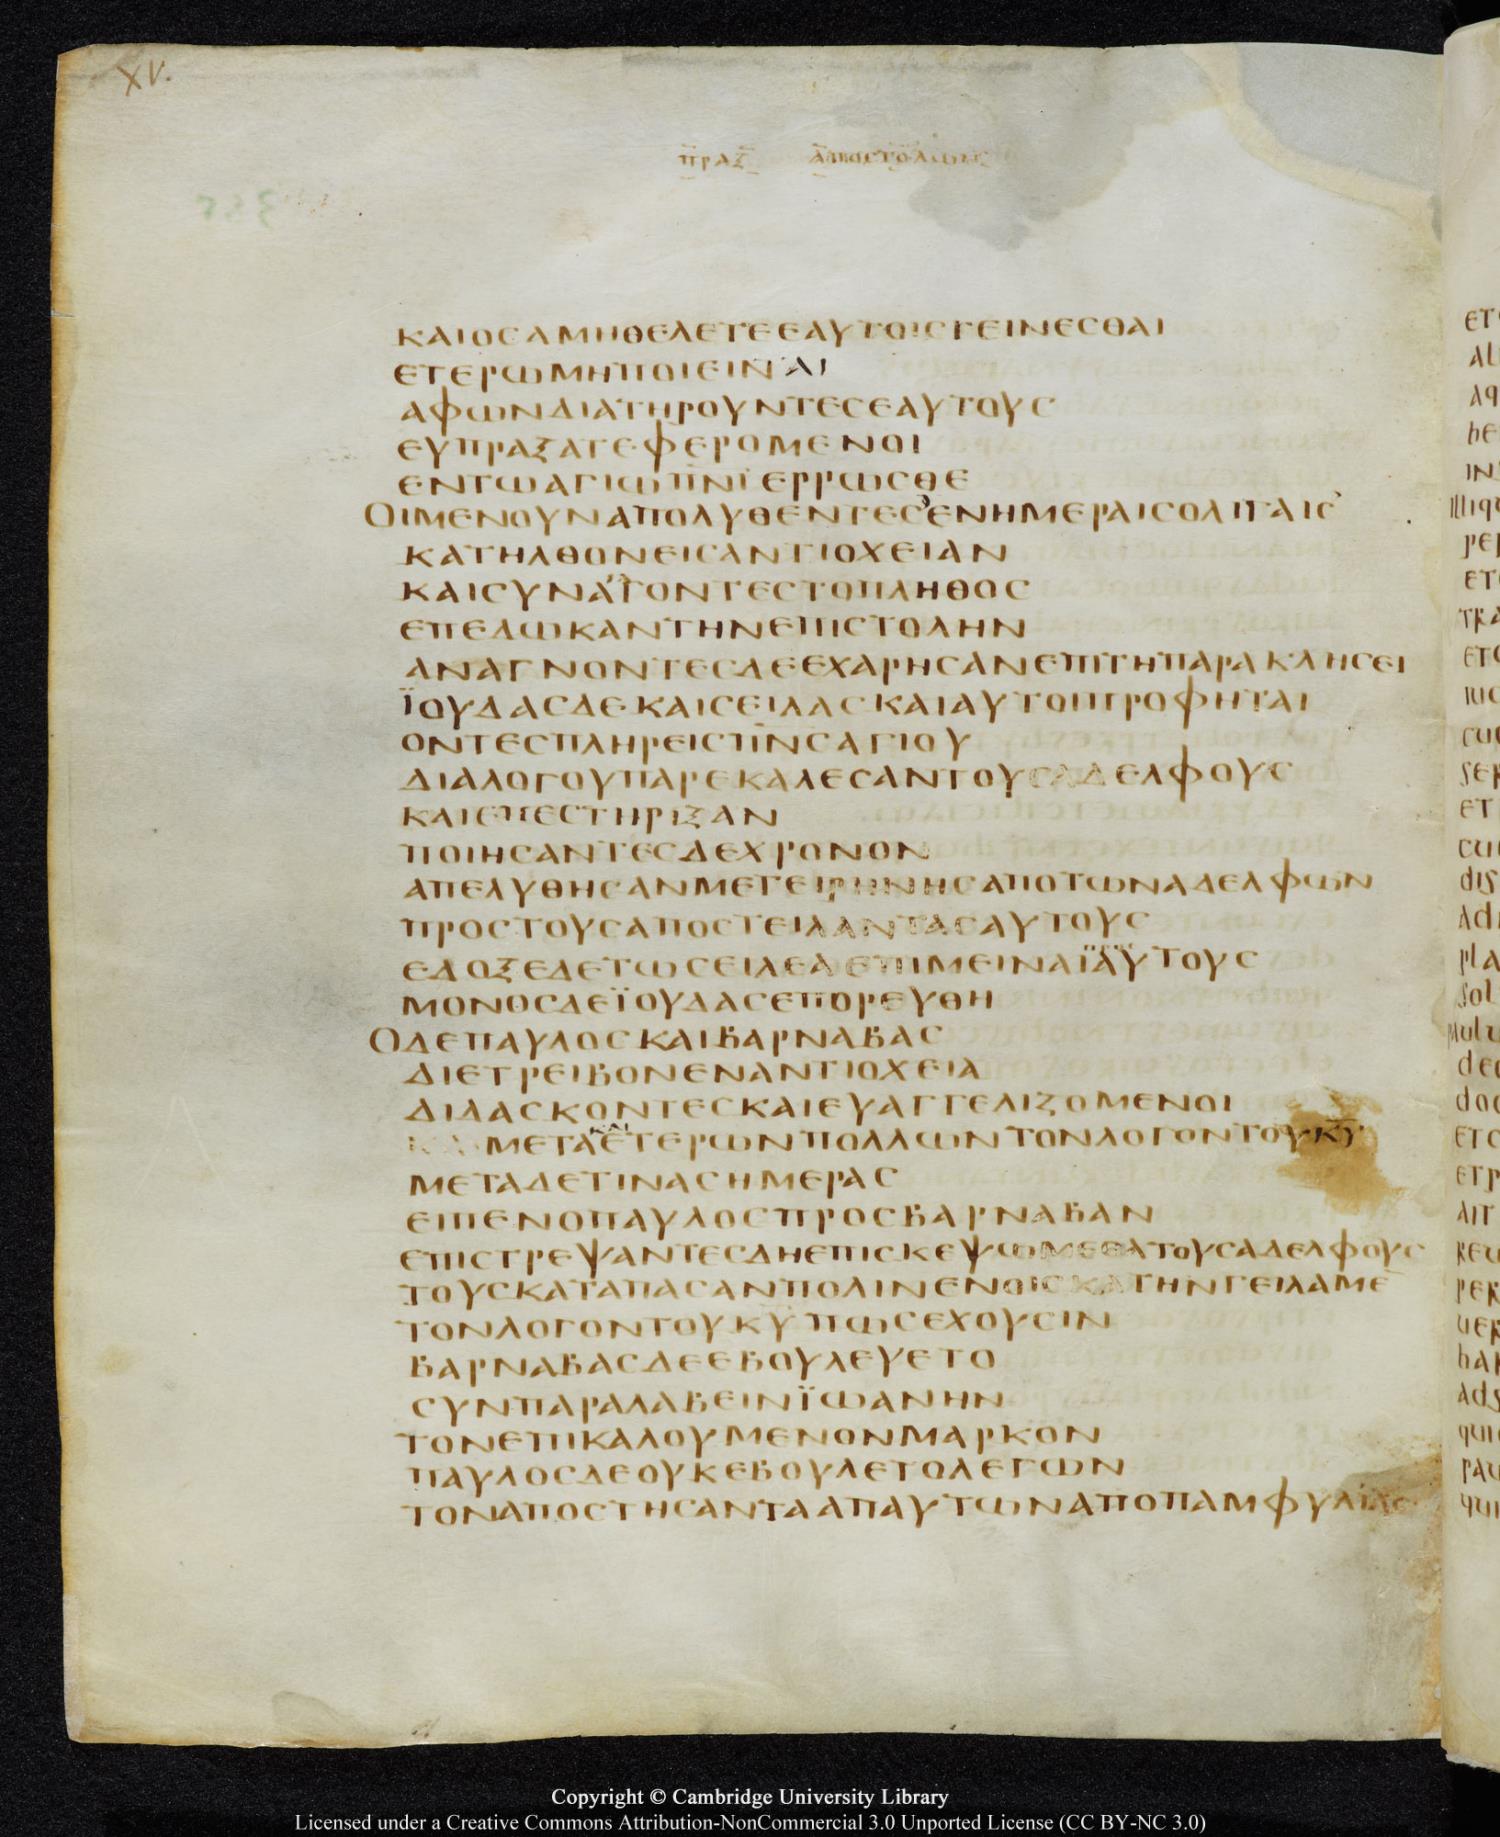 XV.
ΠΡΑΞ ΑΠΟΣΤΟΛΩΝ
ΚΑΙΟСΑΜΗΘΕΛΕΤΕΕΑΥΤΟΙСΓΕΙΝΕСΘΑΙ
ΕΤΕΡΩΜΗΠΟΙΕΙΝ
ΑΦΩΝΔΙΑΤΗΡΟΥΝΤΕСΕΑΥΤΟΥС
ΕΥΠΡΑΞΑΤΕΦΕΡΟΜΕΝΟΙ
ΕΝΤΩΑΓΙΩΠΝΙΕΡΡΩСΘΕ
ΟΙΜΕΝΟΥΝΑΠΟΛΥΘΕΝΤΕС᾽ΕΝΗΜΕΡΑΙСΟΛΙΓΑΙС
ΚΑΤΗΛΘΟΝΕΙСΑΝΤΙΟΧΕΙΑΝ
ΚΑΙСΥΝΑΓΟΝΤΕСΤΟΠΛΗΘΟС
ΕΠΕΔΩΚΑΝΤΗΝΕΠΙСΤΟΛΗΝ
ΑΝΑΓΝΟΝΤΕСΔΕΕΧΑΡΗСΑΝΕΠΙΤΗΠΑΡΑΚΛΗСΕΙ
ΪΟΥΔΑСΔΕΚΑΙСΕΙΛΑСΚΑΙΑΥΤΟΙΠΡΟΦΗΤΑΙ
ΟΝΤΕСΠΛΗΡΕΙСΠΝСΑΓΙΟΥ
ΔΙΑΛΟΓΟΥΠΑΡΕΚΑΛΕСΑΝΤΟΥСΑΔΕΛΦΟΥС
ΚΑΙΕΠΕСΤΗΡΙΞΑΝ
ΠΟΙΗСΑΝΤΕСΔΕΧΡΟΝΟΝ
ΑΠΕΛΥΘΗСΑΝΜΕΤΕΙΡΗΝΗСΑΠΟΤΩΝΑΔΕΛΦΩΝ
ΠΡΟСΤΟΥСΑΠΟСΤΕΙΛΑΝΤΑСΑΥΤΟΥС
ΕΔΟΞΕΔΕΤΩСΕΙΛΕΑΕΠΙΜΕΙΝΑΙΑΥΤΟΥС
ΜΟΝΟСΔΕΪΟΥΔΑСΕΠΟΡΕΥΘΗ
ΟΔΕΠΑΥΛΟСΚΑΙΒΑΡΝΑΒΑС
ΔΙΕΤΡΕΙΒΟΝΕΝΑΝΤΙΟΧΕΙΑ
ΔΙΔΑСΚΟΝΤΕСΚΑΙΕΥΑΓΓΕΛΙΖΟΜΕΝΟΙ
ΜΕΤΑΚΑΙΕΤΕΡΩΝΠΟΛΛΩΝΤΟΝΛΟΓΟΝΤΟΥΚΥ
ΜΕΤΑΔΕΤΙΝΑСΗΜΕΡΑС
ΕΙΠΕΝΟΠΑΥΛΟСΠΡΟСΒΑΡΝΑΒΑΝ
ΕΠΙСΤΡΕΨΑΝΤΕСΔΗΕΠΙСΚΕΨΩΜΕΘΑΤΟΥСΑΔΕΛΦΟΥС
ΤΟΥСΚΑΤΑΠΑСΑΝΠΟΛΙΝΕΝΟΙСΚΑΤΗΝΓΕΙΛΑΜΕ
ΤΟΝΛΟΓΟΝΤΟΥΚΥΠΩСΕΧΟΥСΙΝ
ΒΑΡΝΑΒΑСΔΕΕΒΟΥΛΕΥΕΤΟ
СΥΝΠΑΡΑΛΑΒΕΙΝΪΩΑΝΗΝ
ΤΟΝΕΠΙΚΑΛΟΥΜΕΝΟΝΜΑΡΚΟΝ
ΠΑΥΛΟСΔΕΟΥΚΕΒΟΥΛΕΤΟΛΕΓΩΝ
ΤΟΝΑΠΟСΤΗСΑΝΤΑΑΠΑΥΤΩΝΑΠΟΠΑΜΦΥΛΙΑС
Copyright © Cambridge University Library
Licensed under a Creative Commons Attribution-NonCommercial 3.0 Unported License (CC BY-NC 3.0)